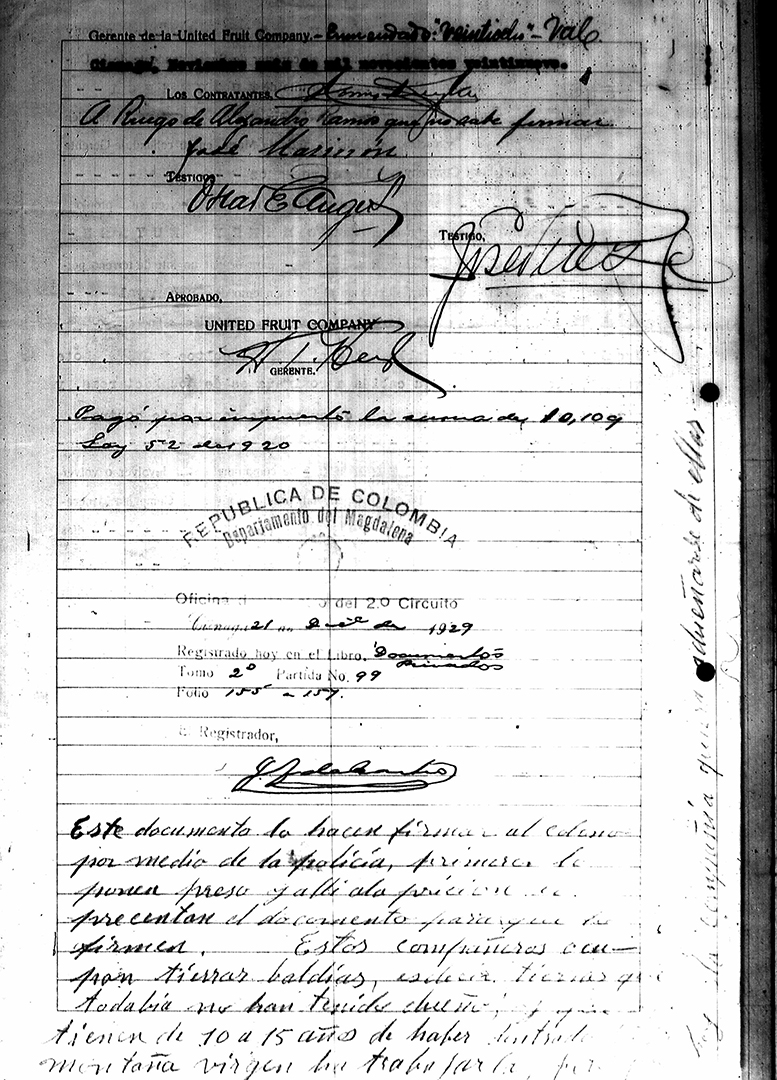 Gerente de la United Fruit Company.- Enmendado: "Veintiocho" - Vale
Cienaga, Noviembre seis de mil novecientos veintinueve.
LOS CONTRATANTES,
A Ruego de Alejandro Ramos que no sabe firmar
José Marimón
TESTIGOS
Oscar E Angel
TESTIGO,
APROBADO,
UNITED FRUIT COMPANY
GERENTE.
Pagó por impuesto la suma de $0,109
Ley 52 de 1920
REPUBLICA DE COLOMBIA
Departamento del Magdalena
Oficina del 2.o Circuito
Cienaga 21 de 1929
Registrado hoy en el Libro, Documentos
Privados
Tomo 2º Partida No. 99
Folio 155 a 157.
Registrador,
Este documento lo hacen firmar al colono
por medio de la policía, primero lo
ponen preso y alli a la pricion le
precentan el documento para que lo
firmen. Estos compañeros ocu-
pan tierras baldías, es decir tierras que
todabia no han tenido dueño,
tienen de 10 a 15 años de haber
montaña virgen ha trabajarla,
la compañia quiere adueñarse de ellas